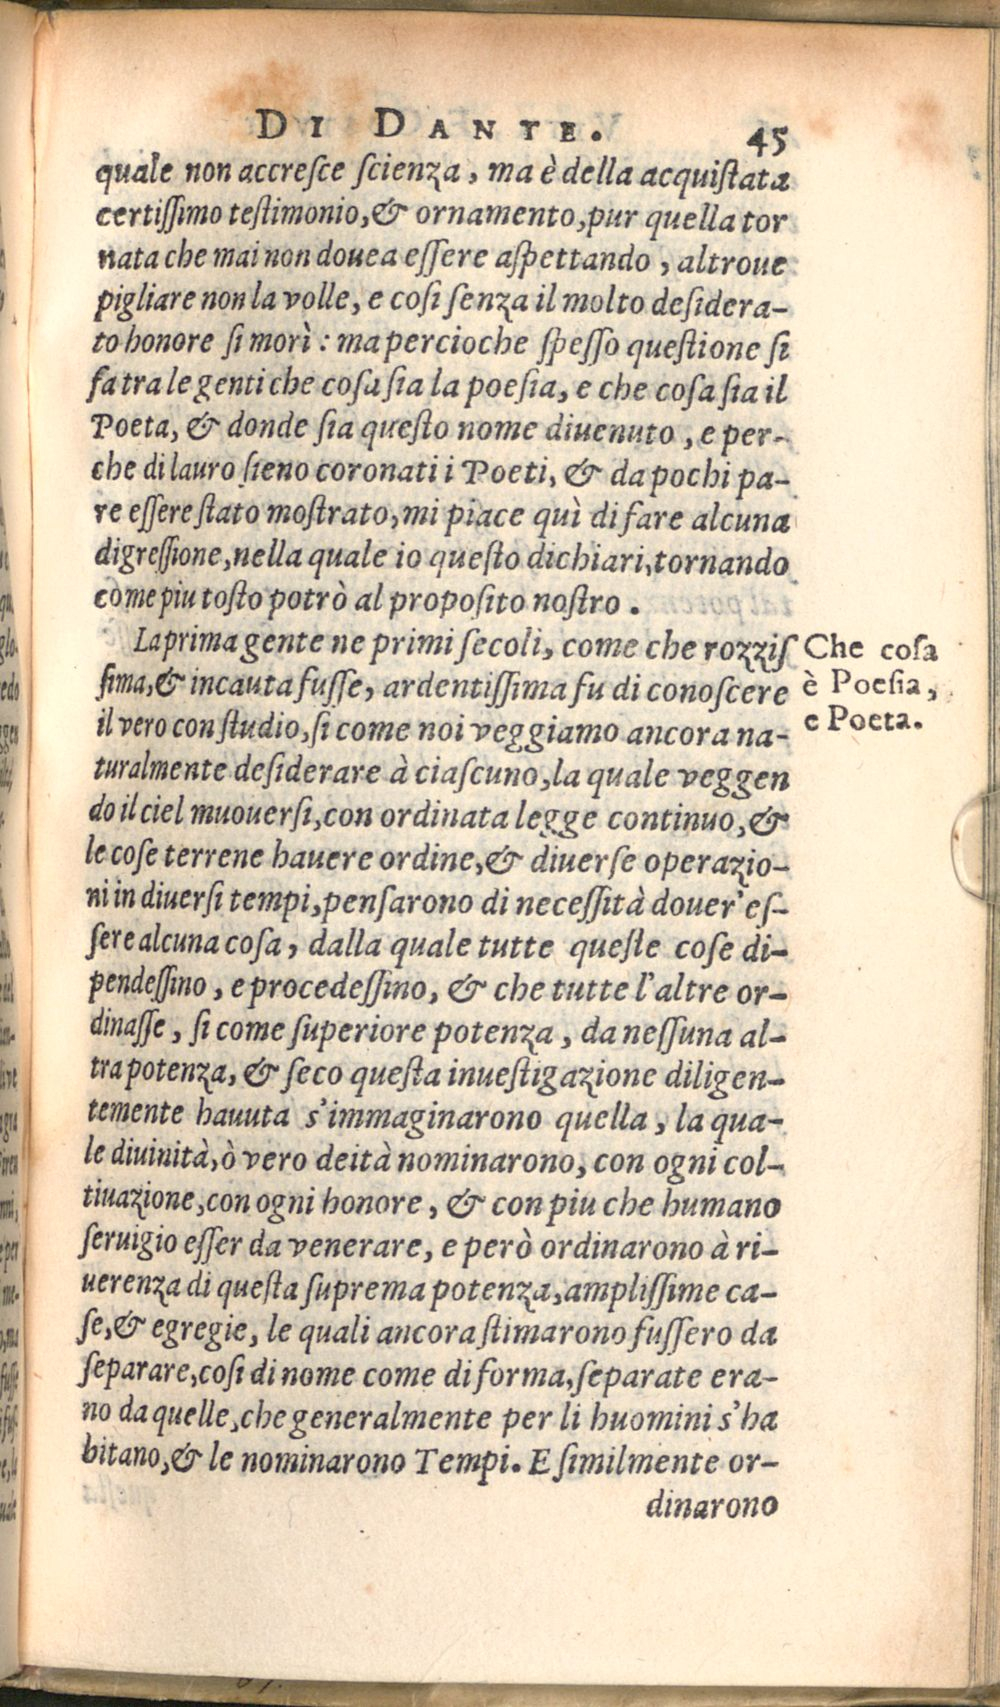 DI DANTE. 45
quale non accreſce ſcienza, ma è della acquiſtata
certiſſimo teſtimonio, & ornamento, pur quella tor
nata che mai non douea eſſere aſpettando, altroue
pigliare non la volle, e coſi ſenza il molto deſidera-
to honore ſi morì: ma percioche ſpeſſo queſtione ſi
fa tra le genti che coſa ſia la poeſia, e che coſa ſia il
Poeta, & donde ſia queſto nome diuenuto, e per-
che di lauro ſieno coronati i Poeti, & da pochi pa-
re eſſere ſtato moſtrato, mi piace quì di fare alcuna
digreſſione, nella quale io queſto dichiari, tornando
come piu toſto potrò al propoſito noſtro.
La prima gente ne primi ſecoli, come che rozziſ
ſima, & incauta fuſſe, ardentiſſima fu di conoſcere
il vero con ſtudio, ſi come noi veggiamo ancora na-
turalmente deſiderare à ciaſcuno, la quale veggen
do il ciel muouerſi, con ordinata legge continuo, &
le coſe terrene hauere ordine, & diuerſe operazio-
ni in diuerſi tempi, penſarono di neceſſità douer'eſ-
ſere alcuna coſa, dalla quale tutte queſte coſe di-
pendeſſino, e procedeſſino, & che tutte l'altre or-
dinaſſe, ſi come ſuperiore potenza, da neſſuna al-
tra potenza, & ſeco queſta inueſtigazione diligen-
temente hauuta s'immaginarono quella, la qua-
le diuinità, ò vero deità nominarono, con ogni col-
tiuazione, con ogni honore, & con piu che humano
ſeruigio eſſer da venerare, e però ordinarono à ri-
uerenza di queſta ſuprema potenza, ampliſſime ca-
ſe, & egregie, le quali ancora ſtimarono fuſſero da
ſeparare, coſi di nome come di forma, ſeparate era-
no da quelle, che generalmente per li huomini s'ha
bitano, & le nominarono Tempi. E ſimilmente or-
dinarono
Che coſa
è Poeſia,
e Poeta.